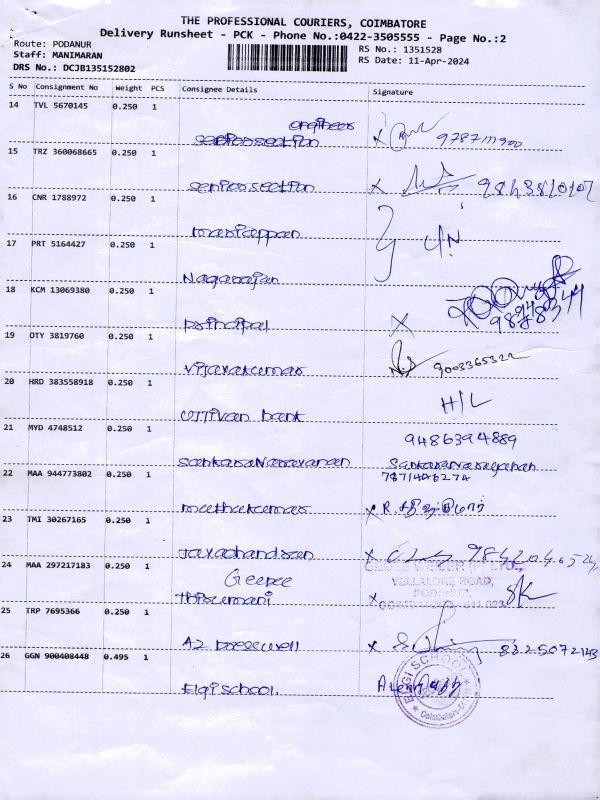 THE PROFESSIONAL COURIERS, COIMBATORE
Delivery Runsheet - PCK - Phone No.:0422-3505555 - Page No.:2
Route: PODANUR
Staff: MANIMARAN
DRS No.: DCJB135152802
RS No.: 1351528
RS Date: 11-Apr-2024
S No Consignment No Weight PCS Consignee Details Signature
14 TVL 5670145 0.250 1
engineer
senior section
15 TRZ 360068665 0.250 1
senior section
16 CNR 1788972 0.250 1
mariappan
17 PRT 5164427 0.250 1
Nagarajan
18 KCM 13069380 0.250 1
principal
19 OTY 3819760 0.250 1
vijayakumar 9003365322
20 HRD 383558918 0.250 1
H/L
ujjivan bank
21 MYD 4748512 0.250 1
9486394889
sankaraNarayanan Sankaranarayanan
22 MAA 944773802 0.250 1
muthukumar
23 TMI 30267165 0.250 1
Jayachandran
24 MAA 297217183 0.250 1
Geepee
Thirumani
VELLALORE ROAD,
PODANUR,
25 TRP 7695366 0.250 1
A2 presswell
26 GGN 900408448 0.495 1
Elgi school.
ELGI SCHOOL